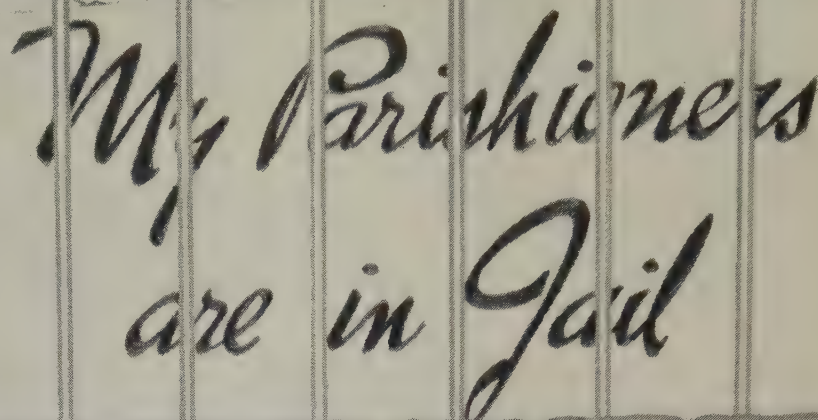 My Parishioners
are in Jail